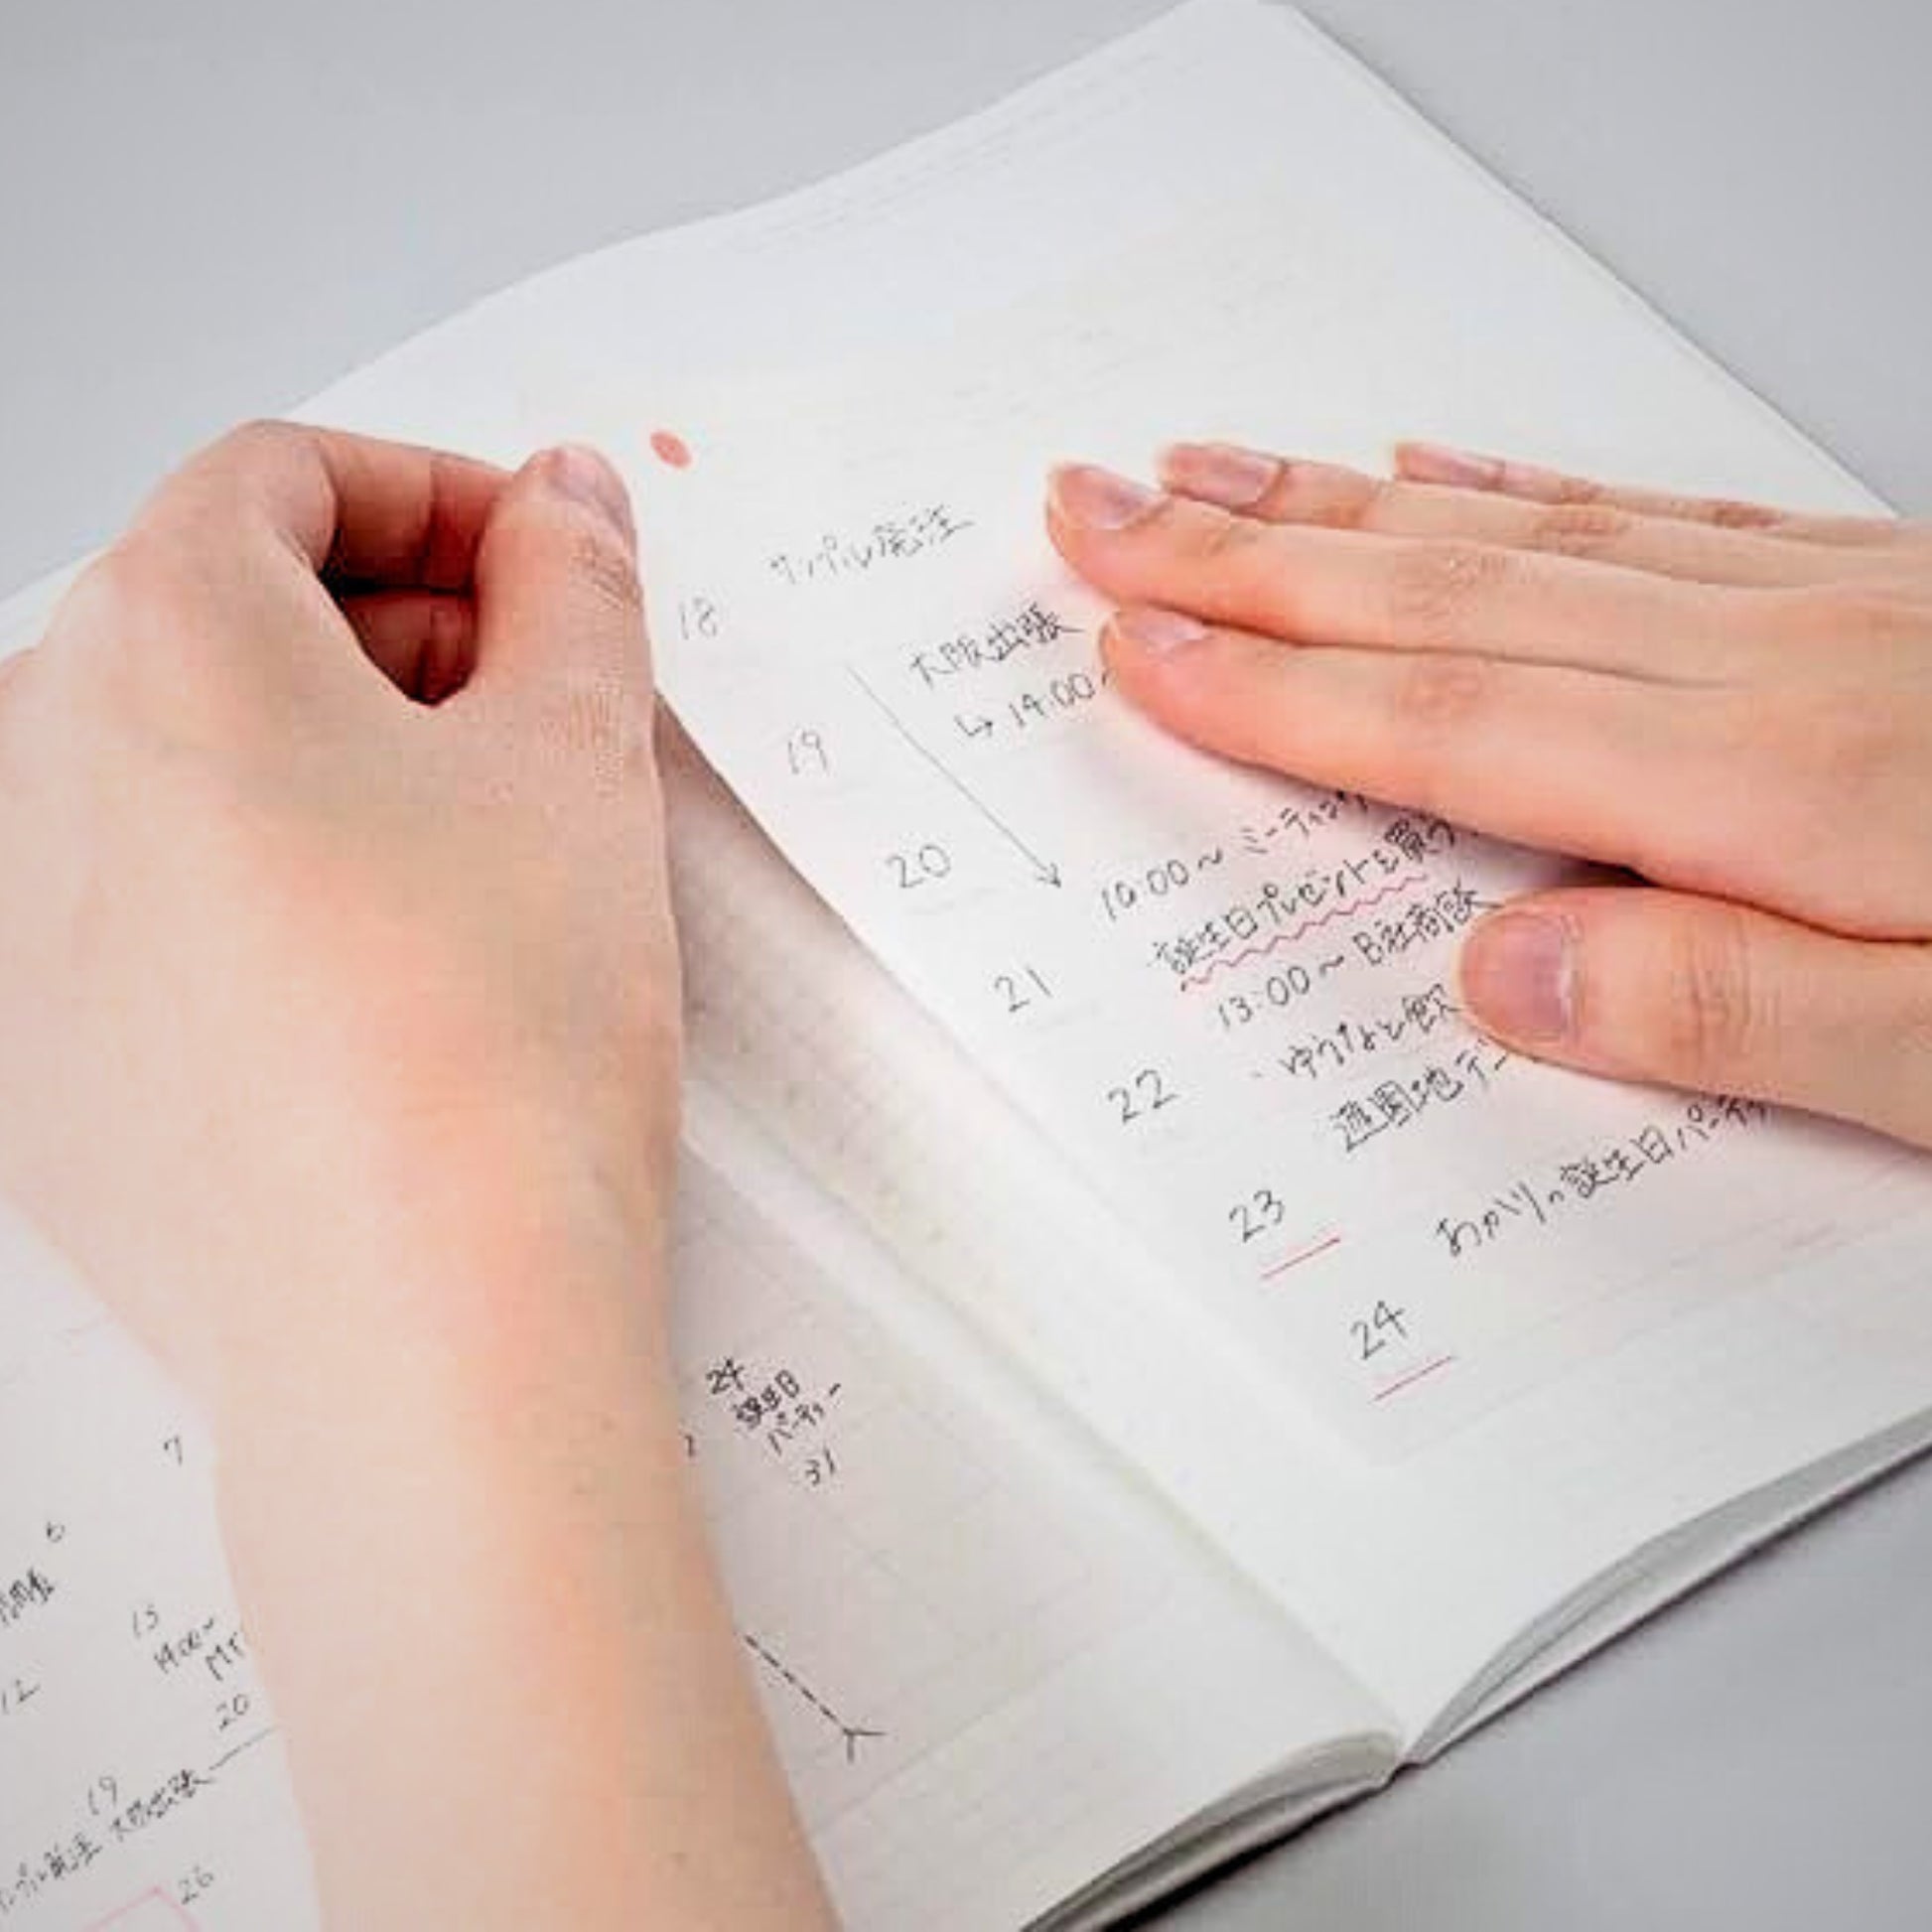 18
サンプル発注
19
大阪出張
↳ 14:00~
20
21
10:00~ ミーティング
・誕生日プレゼントを買う
13:00~ B社商談
22
・ゆうなと飲
23
遊園地デー
24
あかりの誕生日パーティ
24
誕生日
パーティー
31
7
6
15
14:00~
MT
12
20
19
大阪出張
サンプル発注
26